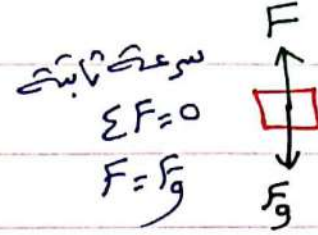 سرعة ثابتة
ΣF=0
F=Fg
F
Fg